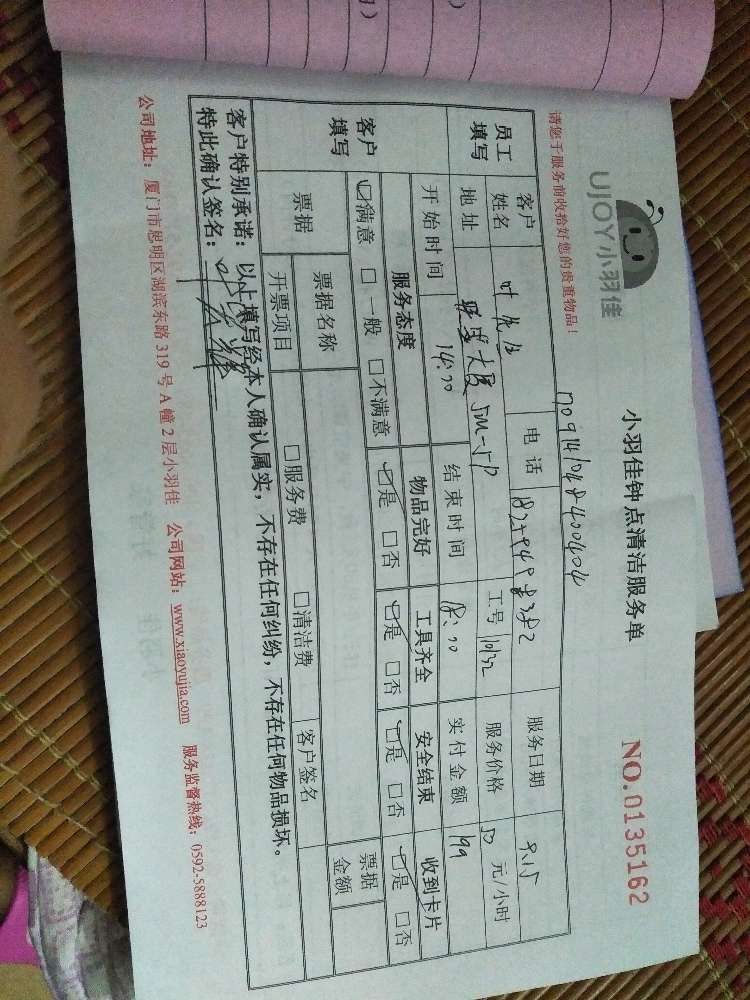 UJOY小羽佳
小羽佳钟点清洁服务单
NO.0135162
请您于服务前收拾好您的贵重物品！
员工填写
客户姓名 叶先生 电话 服务日期
地址 大厦 工号 服务价格 50 元/小时
开始时间 14:00 结束时间 18:00 实付金额 199
客户填写
服务态度 物品完好 工具齐全 安全结束 收到卡片
☑满意 □一般 □不满意 ☑是 □否 ☑是 □否 ☑是 □否 ☑是 □否
票据
票据名称 票据金额
开票项目 □服务费 □清洁费 客户签名
客户特别承诺：以上填写经本人确认属实，不存在任何纠纷，不存在任何物品损坏。
特此确认签名：
公司地址：厦门市思明区湖滨东路319号A幢2层小羽佳 公司网站：www.xiaoyujia.com 服务监督热线：0592-5888123